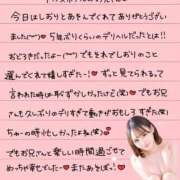 今日はしおりとあそんでくれてありがとうござい
ました(^^) 5年ぶりくらいのデリヘルだったとは!!
おどろきだったよー(^^) でもそれでしおりのこと
選んでくれて嬉しすぎたー! ずっと見てられるって
言われた時は恥ずかしかったけど…(笑) でもお兄
さんもスレンダーのデリすぎて動きがおもしろすぎた(笑)
ちゅーの時忙しかったよね(笑)
でもお兄さんと楽しい時間過ごせて
めっちゃ幸せでした またあそぼ〜!